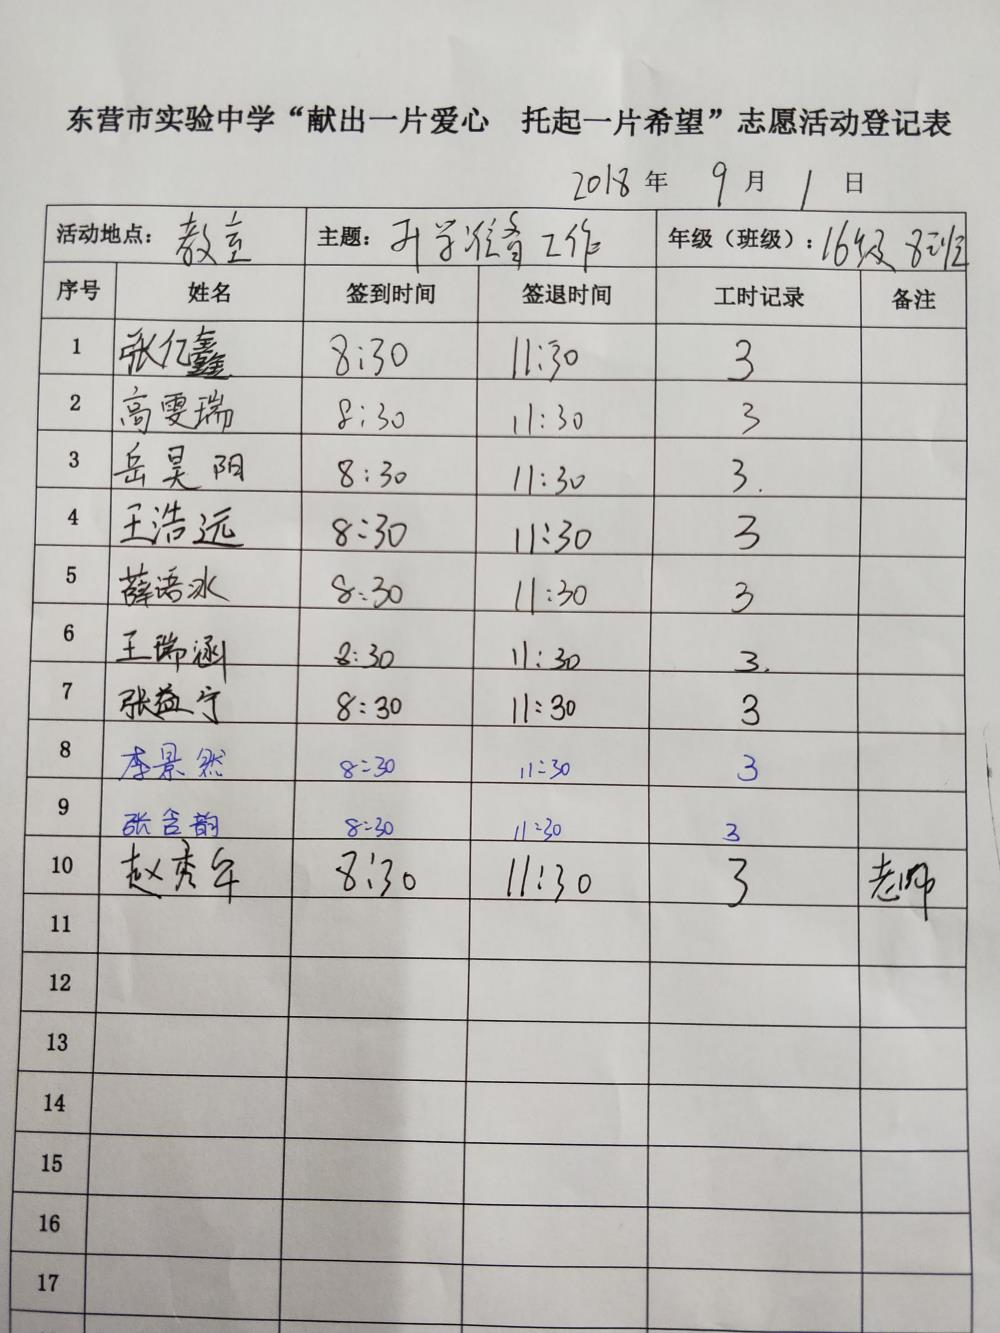 东营市实验中学“献出一片爱心 托起一片希望”志愿活动登记表
2018 年 9 月 1 日
活动地点: 教室 主题: 开学准备工作 年级（班级）: 16级 8班
序号 姓名 签到时间 签退时间 工时记录 备注
1 张亿鑫 8:30 11:30 3
2 高雯瑞 8:30 11:30 3
3 岳昊阳 8:30 11:30 3.
4 王浩远 8:30 11:30 3
5 薛语冰 8:30 11:30 3
6 王瑞涵 8:30 11:30 3.
7 张益宁 8:30 11:30 3
8 李景然 8:30 11:30 3
9 张含韵 8:30 11:30 3
10 赵秀军 8:30 11:30 3 老师
11
12
13
14
15
16
17